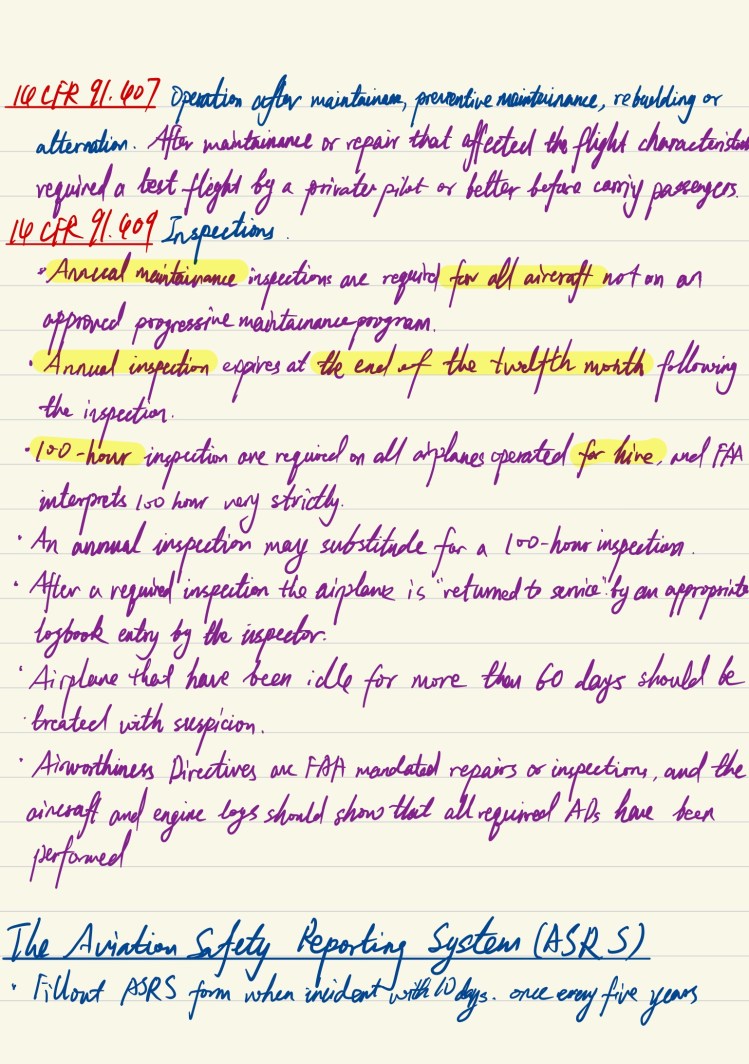 14 CFR 91.407 Operation after maintainance, preventive maintainance, rebuilding or
alternation. After maintainance or repair that affected the flight characteristic
required a test flight by a private pilot or better before carriy passengers.
14 CFR 91.409 Inspections.
• Annual maintainance inspections are required for all aircraft not on an
approved progressive maintainance program.
• Annual inspection expires at the end of the twelfth month following
the inspection.
• 100-hour inspection are required on all airplanes operated for hire, and FAA
interprets 100 hour very strictly.
• An annual inspection may substitude for a 100-hour inspection.
• After a required inspection the airplane is "returned to service" by an appropriate
logbook entry by the inspector.
• Airplane that have been idle for more than 60 days should be
treated with suspicion.
• Airworthiness Directives are FAA mandated repairs or inspections, and the
aircraft and engine logs should show that all required ADs have been
performed
The Aviation Safety Reporting System (ASRS)
• Fillout ASRS form when incident with 10 days. once every five years